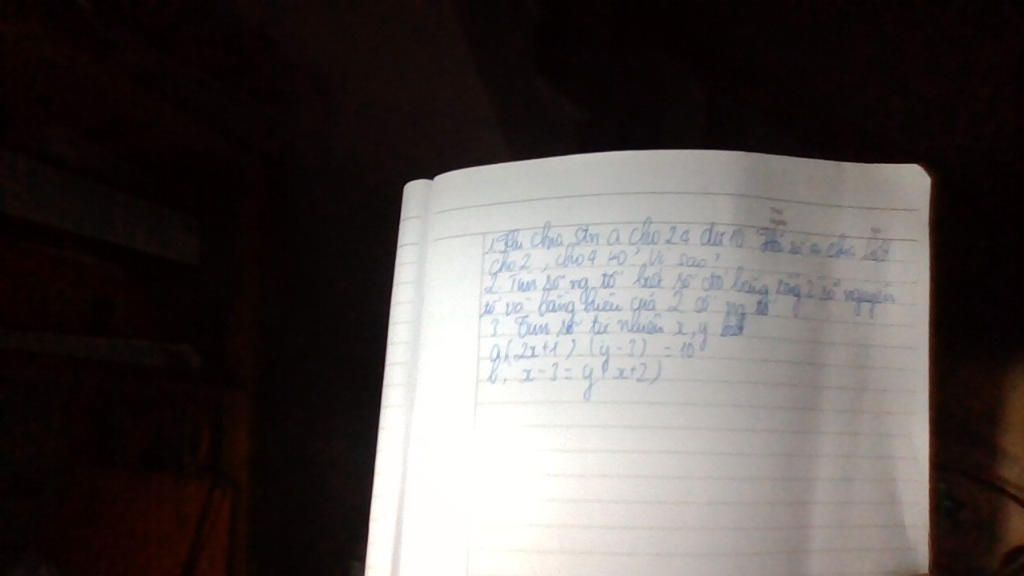 1. Khi chia stn a cho 24 dư 10 Hỏi số a chia hết
cho 2, cho 4 ko? Vì sao?
2. Tìm số ng tố biết số đó bằng tổng 2 số nguyên
tố và bằng hiệu của 2 số ng tố
3. Tìm số tự nhiên x, y
a, (2x+1) (y-3) = 10
b, x-3 = y(x+2)